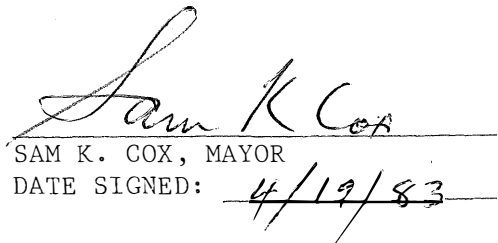 Sam K Cox
SAM K. COX, MAYOR
DATE SIGNED: 4/19/83